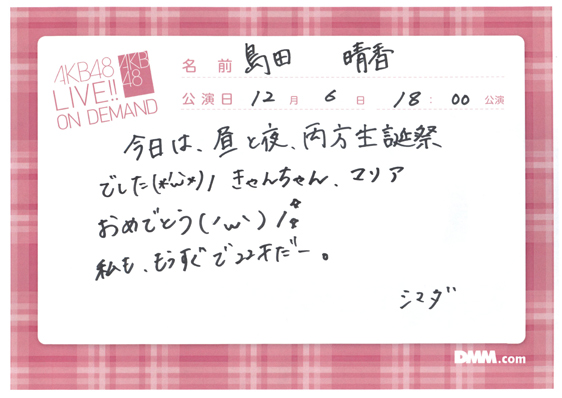 AKB48
LIVE!!
ON DEMAND
AKB
48
名前 島田 晴香
公演日 12月 6日 18:00 公演
今日は、昼と夜、両方生誕祭
でした(*'ω'*)ノ きゃんちゃん、マリア
おめでとう(ノω丶)ノ
私も、もうすぐで22才だー。
シマダ
DMM.com